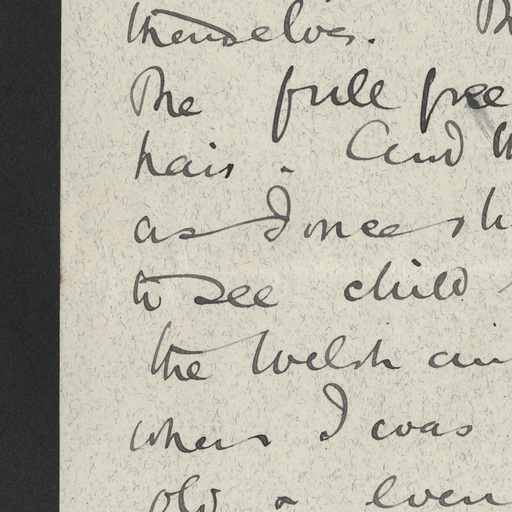 themselves.
The full free
hair. And
as I once
to see child
the Welsh
when I was
old & even